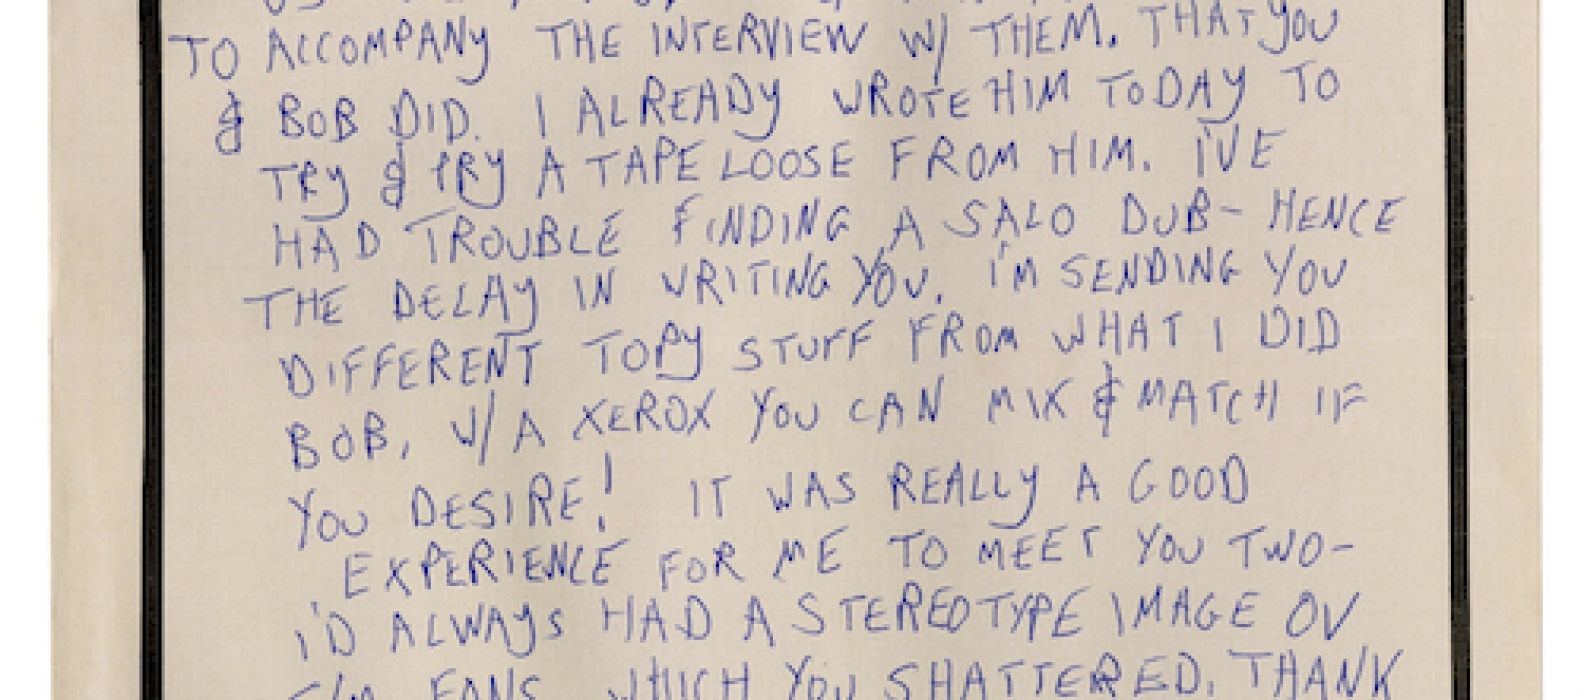 TO ACCOMPANY THE INTERVIEW W/ THEM. THAT YOU
& BOB DID. I ALREADY WROTE HIM TODAY TO
TRY & PRY A TAPE LOOSE FROM HIM. I'VE
HAD TROUBLE FINDING A SALO DUB- HENCE
THE DELAY IN WRITING YOU. I'M SENDING YOU
DIFFERENT TOPY STUFF FROM WHAT I DID
BOB, W/A XEROX YOU CAN MIX & MATCH IF
YOU DESIRE! IT WAS REALLY A GOOD
EXPERIENCE FOR ME TO MEET YOU TWO-
I'D ALWAYS HAD A STEREOTYPE IMAGE OV
FANS WHICH YOU SHATTERED. THANK